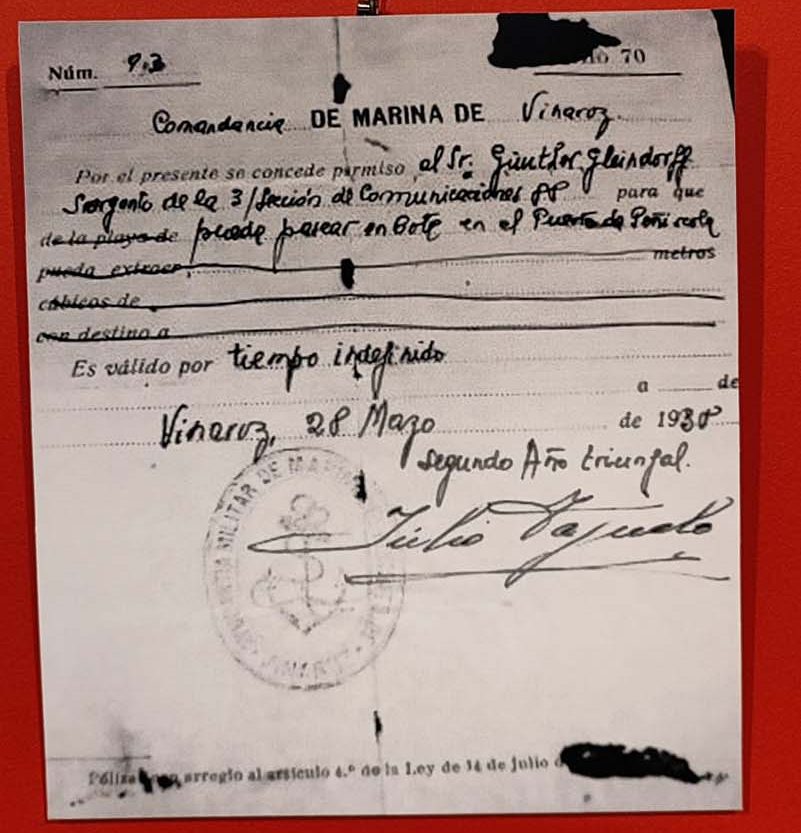 Núm. 93
70
Comandancia DE MARINA DE Vinaroz.
Por el presente se concede permiso al Sr. Günther Gleindorff
Sargento de la 3/Sección de Comunicaciones 88 para que
de la playa de puede pasear en Bote en el Puerto de Peñiscola
pueda extraer, metros
cúbicos de
con destino a
Es válido por tiempo indefinido
a de
Vinaroz, 28 Mazo de 1938
segundo Año triunfal.
Julio
MILITAR DE MARINA
VINAROZ
Póliza con arreglo al artículo 4.º de la Ley de 14 de julio